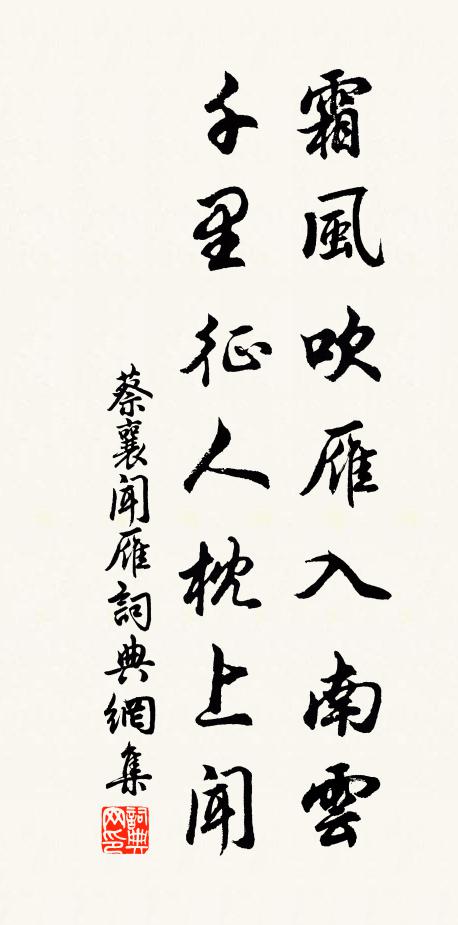 霜風吹雁入南雲
千里征人枕上聞
蔡襄聞雁詞典網集
詞典
网印